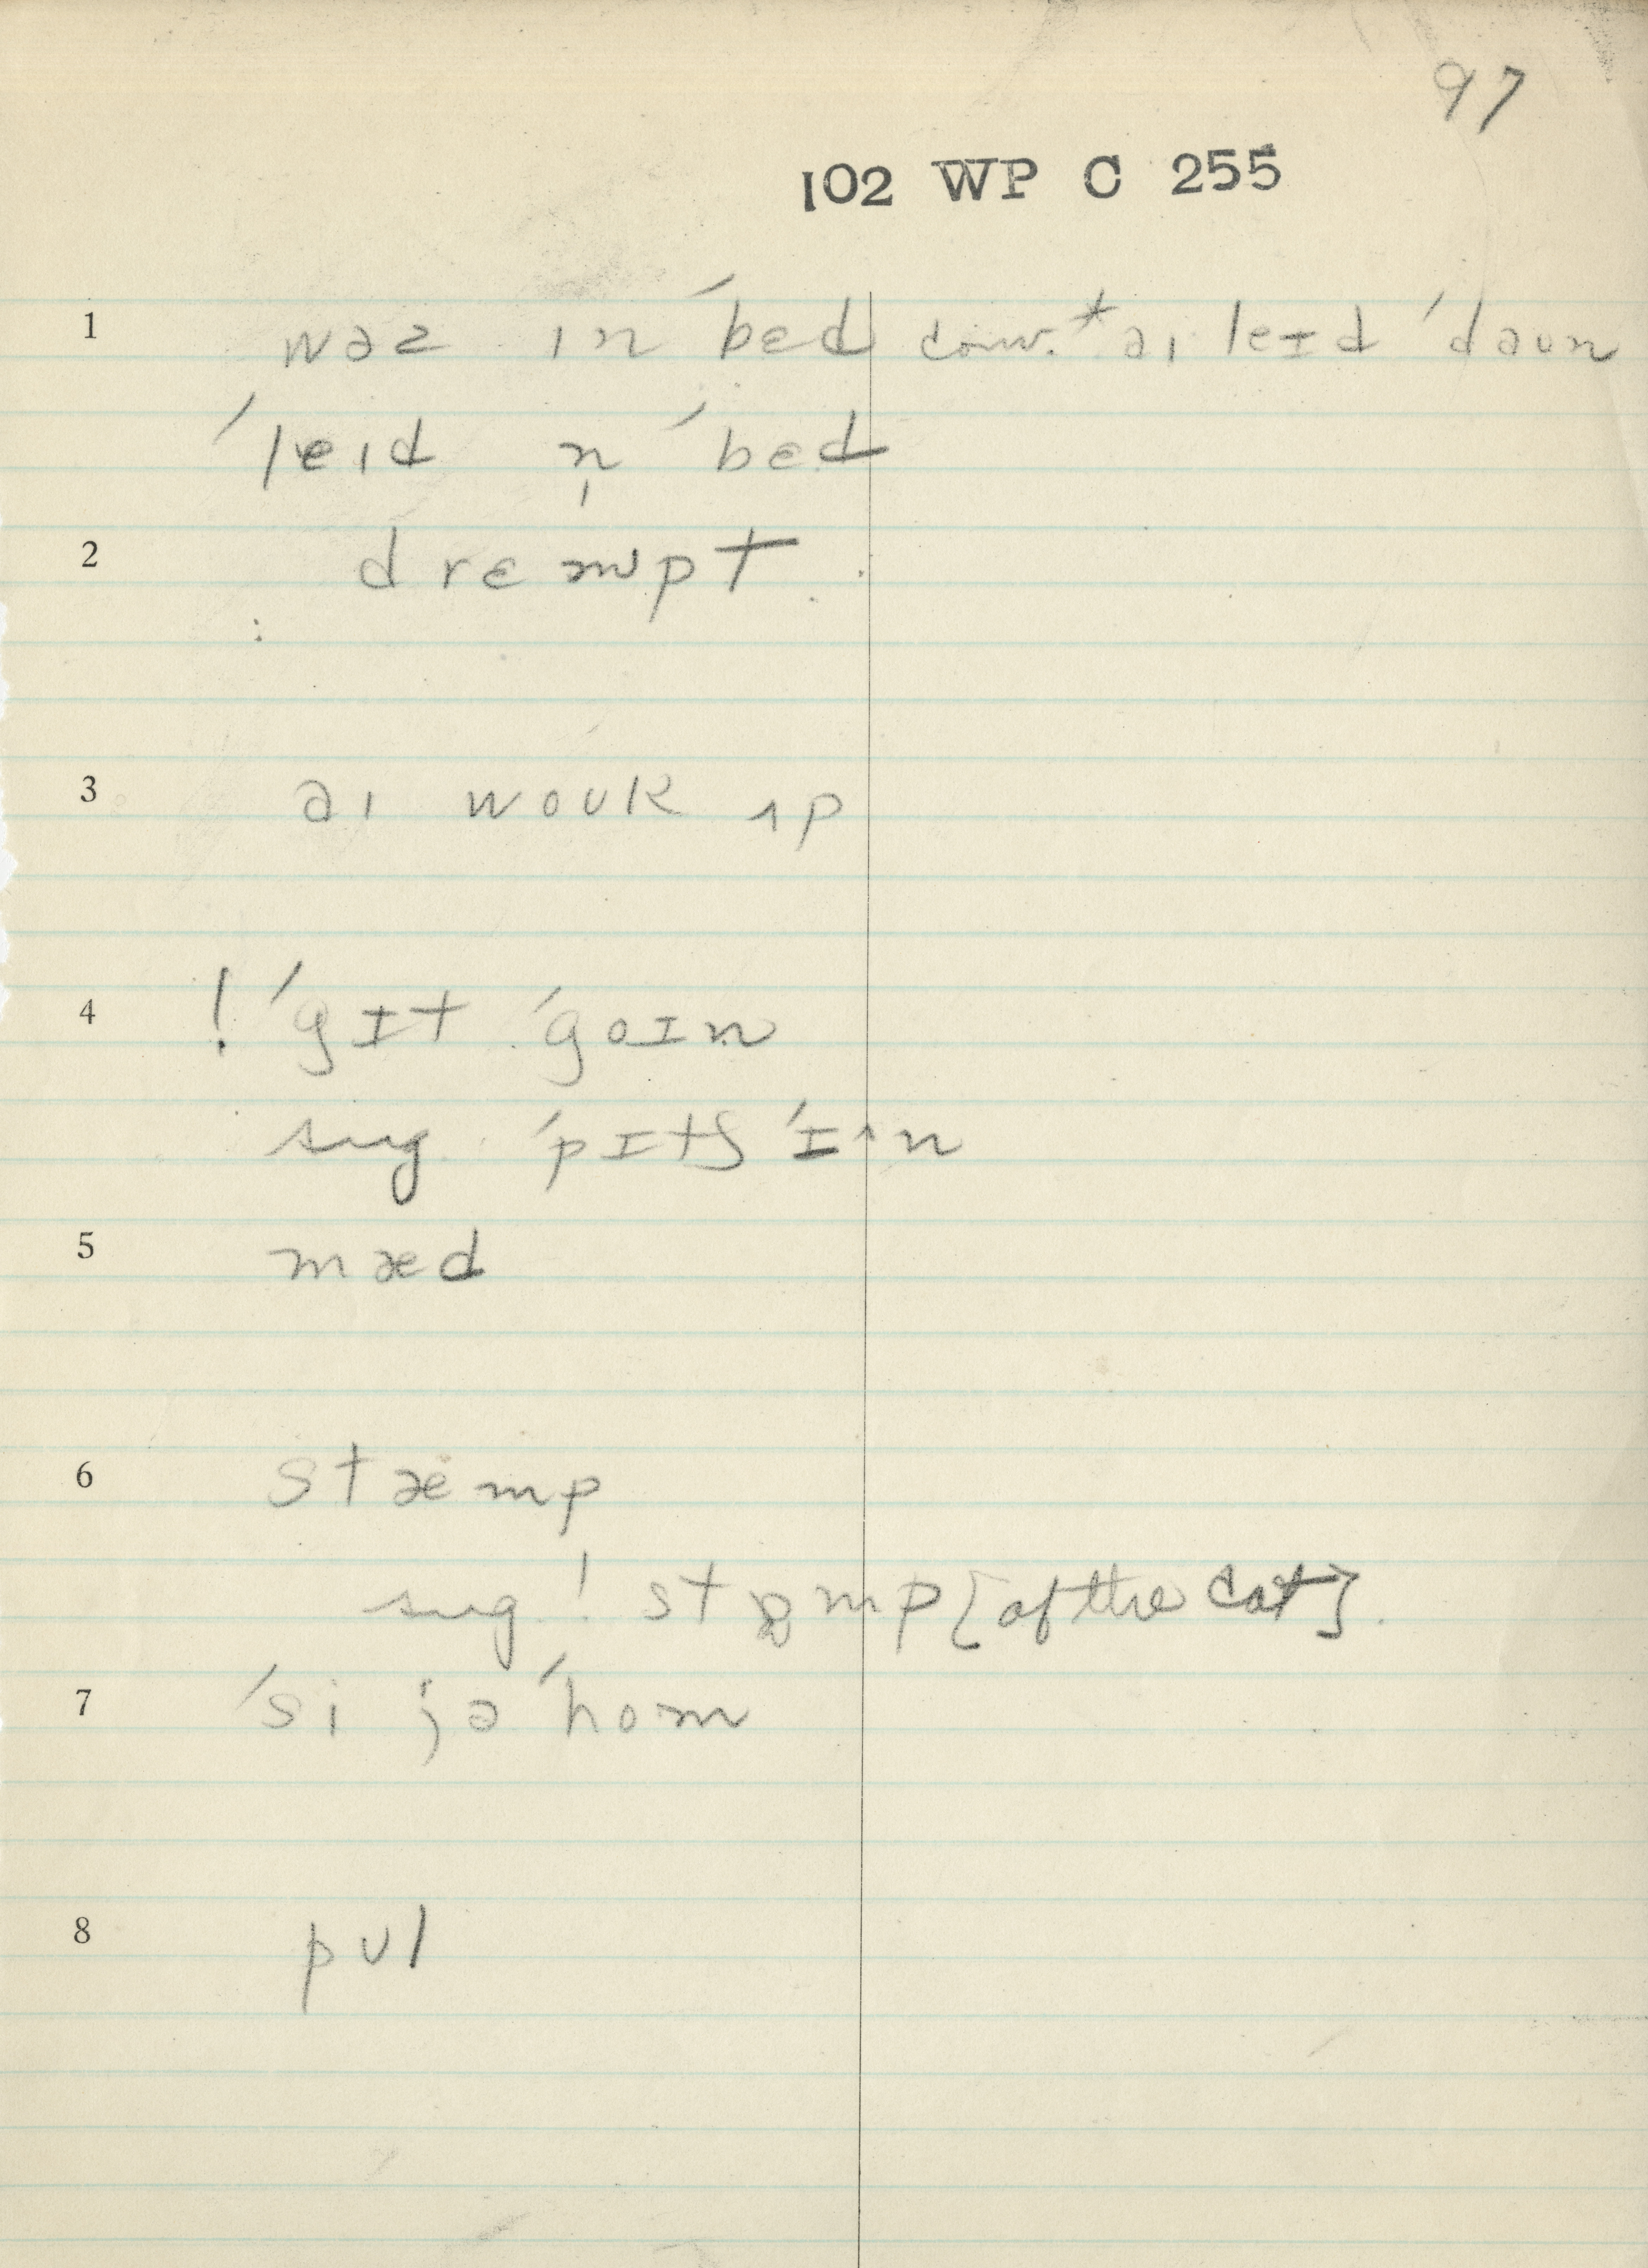 97
102 WP C 255
1 wəz ɪn ˈbɛd conv.* aɪ leɪd ˈdaʊn
ˈleɪd n̩ ˈbɛd
2 drɛmpt
3 aɪ woʊk ʌp
4 ! ˈgɪt ˈgoɪn
sug. ˈpɪtʃ ˈɪ^n
5 mæd
6 stæmp
sug. ! stɒmp [of the cat].
7 ˈsi jə ˈhom
8 pʊl